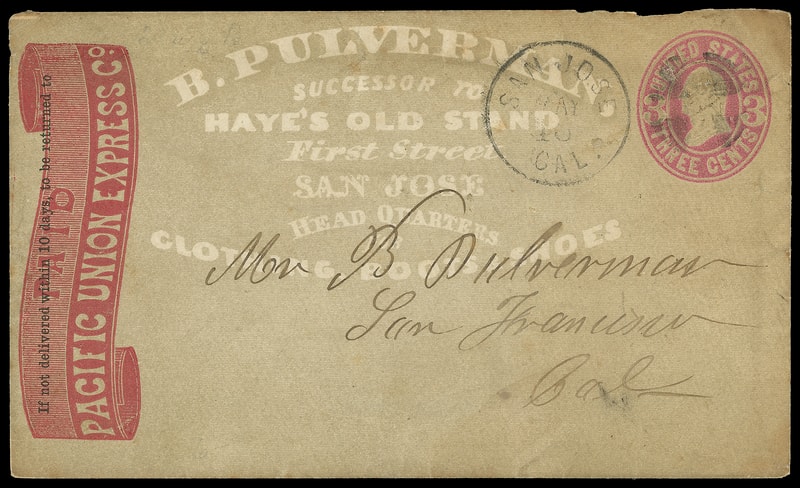 B. PULVERMAN,
SUCCESSOR TO
HAYE'S OLD STAND
First Street
SAN JOSE
HEAD QUARTERS
CLOTHING, BOOTS SHOES
SAN JOSE
MAY
CAL.
UNITED STATES
3
THREE CENTS
If not delivered within 10 days, to be returned to
PAID
PACIFIC UNION EXPRESS CO.
Mr B Pulverman
San Francisco
Cal